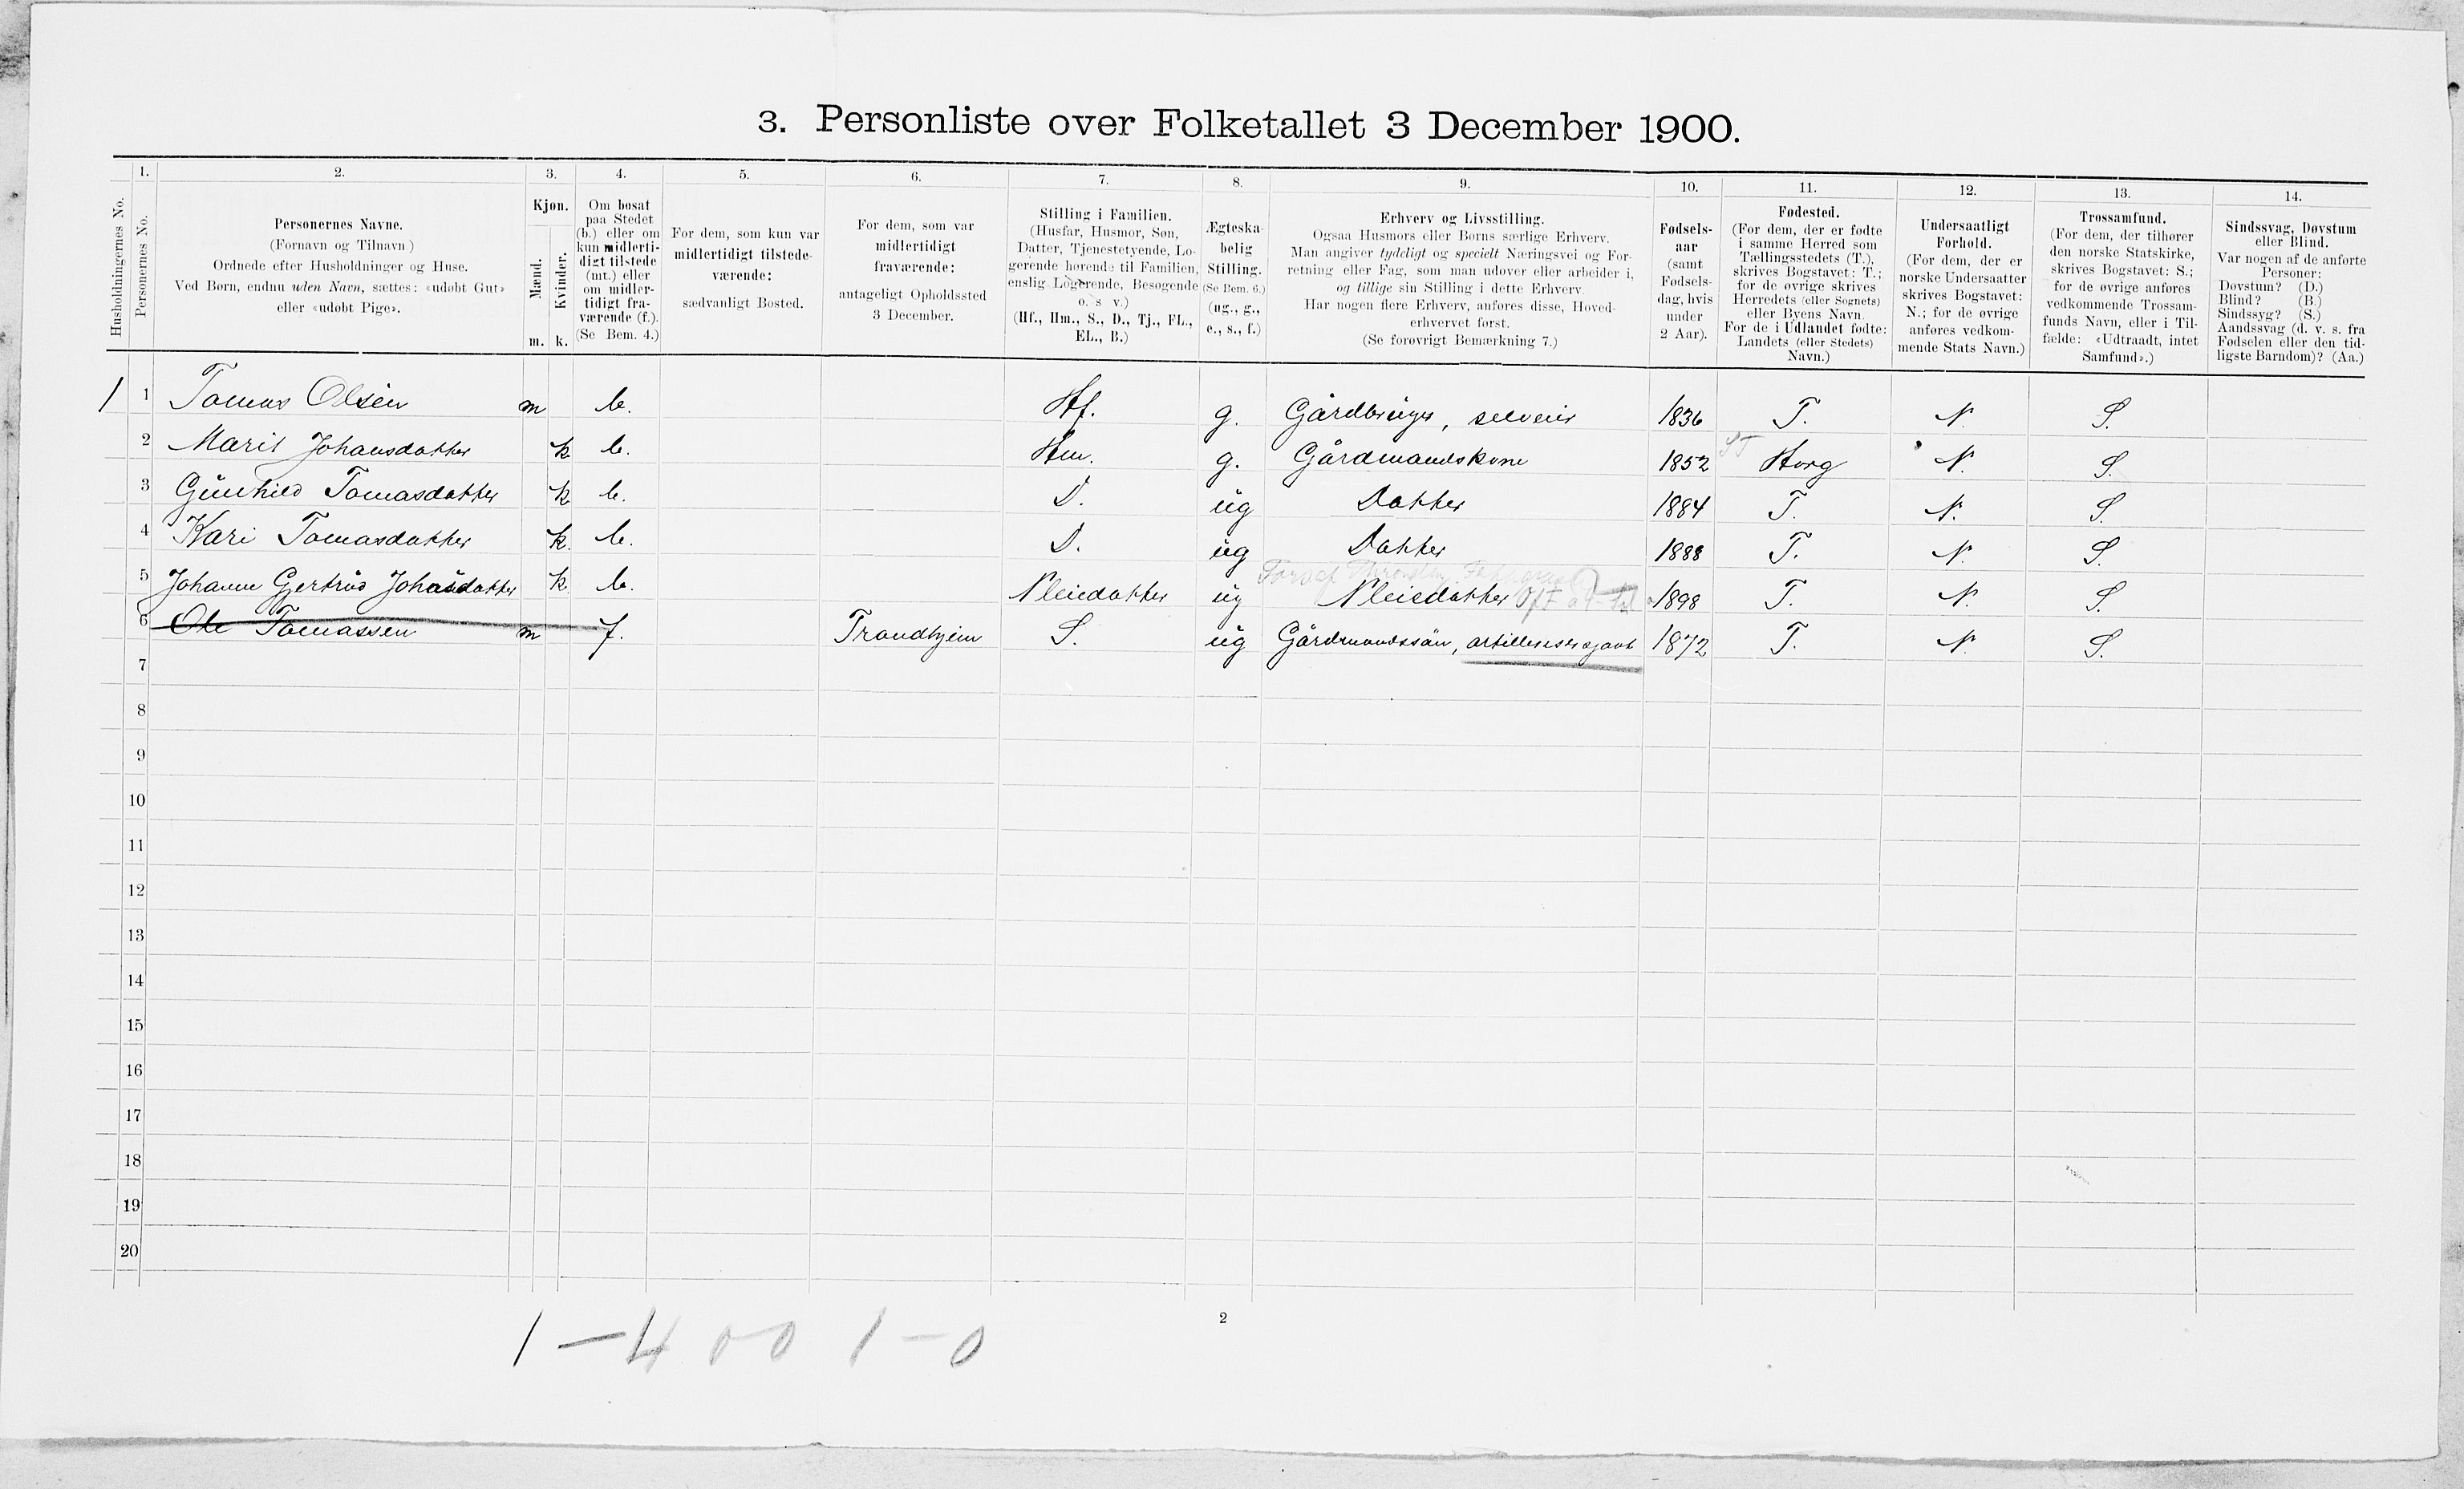 3. Personliste over Folketallet 3 December 1900.
Husholdningernes No.
1.
Personernes No.
2.
Personernes Navne.
(Fornavn og Tilnavn)
Ordnede efter Husholdninger og Huse.
Ved Børn, endnu uden Navn, sættes: «udøbt Gut»
eller «udøbt Pige».
3.
Kjøn.
Mænd.
Kvinder.
m. k.
4.
Om bosat
paa Stedet
(b.) eller om
kun midlerti-
digt tilstede
(mt.) eller
om midler-
tidigt fra-
værende (f.).
(Se Bem. 4.)
5.
For dem, som kun var
midlertidigt tilstede-
værende:
sædvanligt Bosted.
6.
For dem, som var
midlertidigt
fraværende:
antageligt Opholdssted
3 December.
7.
Stilling i Familien.
(Husfar, Husmor, Søn,
Datter, Tjenestetyende, Lo-
gerende hørende til Familien,
enslig Logerende, Besøgende
o. s v.)
(Hf., Hm., S., D., Tj., FL.,
EL., B.)
8.
Ægteska-
belig
Stilling.
(Se Bem. 6.)
(ug., g.,
e., s., f.)
9.
Erhverv og Livsstilling.
Ogsaa Husmors eller Børns særlige Erhverv.
Man angiver tydeligt og specielt Næringsvei og For-
retning eller Fag, som man udøver eller arbeider i,
og tillige sin Stilling i dette Erhverv.
Har nogen flere Erhverv, anføres disse, Hoved-
erhvervet først.
(Se forøvrigt Bemærkning 7.)
10.
Fødsels-
aar
(samt
Fødsels-
dag, hvis
under
2 Aar).
11.
Fødested.
(For dem, der er fødte
i samme Herred som
Tællingsstedets (T.),
skrives Bogstavet: T.;
for de øvrige skrives
Herredets (eller Sognets)
eller Byens Navn.
For de i Udlandet fødte:
Landets (eller Stedets)
Navn.)
12.
Undersaatligt
Forhold.
(For dem, der er
norske Undersaatter
skrives Bogstavet:
N.; for de øvrige
anføres vedkom-
mende Stats Navn.)
13.
Trossamfund.
(For dem, der tilhører
den norske Statskirke,
skrives Bogstavet: S.;
for de øvrige anføres
vedkommende Trossam-
funds Navn, eller i Til-
fælde: «Udtraadt, intet
Samfund».)
14.
Sindssvag, Døvstum
eller Blind.
Var nogen af de anførte
Personer:
Døvstum? (D.)
Blind? (B.)
Sindssyg? (S.)
Aandssvag (d. v. s. fra
Fødselen eller den tid-
ligste Barndom)? (Aa.)
1 1 Tomas Olsen m b. Hf. g. Gårdbruger, selveier 1836 T. N. S.
2 Marit Johansdatter k b. Hm. g. Gårdmandskone 1852 ST Horg N. S.
3 Gunhild Tomasdatter k b. D. ug Datter 1884 T. N. S.
4 Kari Tomasdatter k. b. D. ug Datter 1888 T. N. S.
5 Johanne Gjertrud Johnsdatter k b. Pleiedatter ug Pleiedatter 1898 T. N. S.
6 Ole Tomassen m f. Trondhjem S. ug Gårdmandssøn, artillerisersjant 1872 T. N. S.
7
8
9
10
11
12
13
14
15
16
17
18
19
20
2
1 – 4 0–0 1 – 0